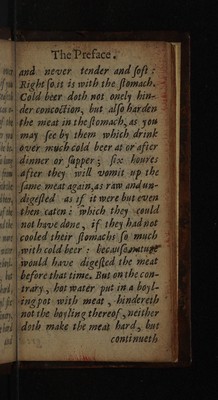 The Preface.
and never tender and soft:
Right so it is with the stomach.
Cold beer doth not onely hin-
der concoction, but also harden
the meat in the stomach, as you
may see by them which drink
over much cold beer at or after
dinner or supper; six houres
after they will vomit up the
same meat again, as raw and un-
digested as if it were but even
then eaten: which they could
not have done, if they had not
cooled their stomachs so much
with cold beer: because nature
would have digested the meat
before that time. But on the con-
trary, hot water put in a boyl-
ing pot with meat, hindereth
not the boyling thereof, neither
doth make the meat hard, but
continueth